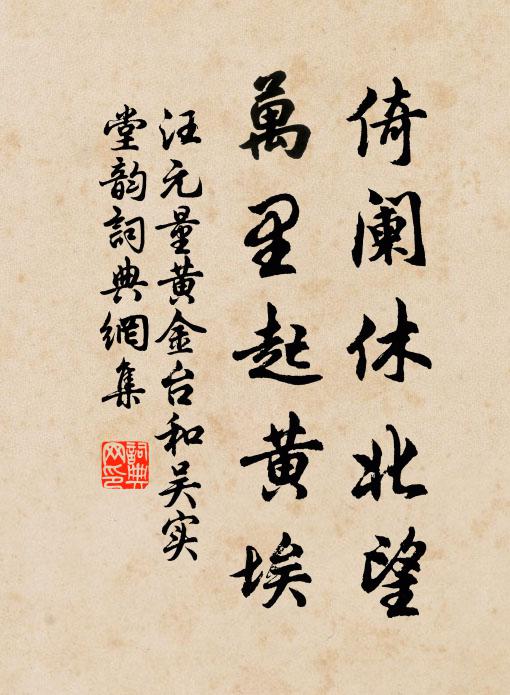 倚阑休北望
萬里起黄埃
汪元量黄金台和吴实
堂韵詞典網集
詞典网印